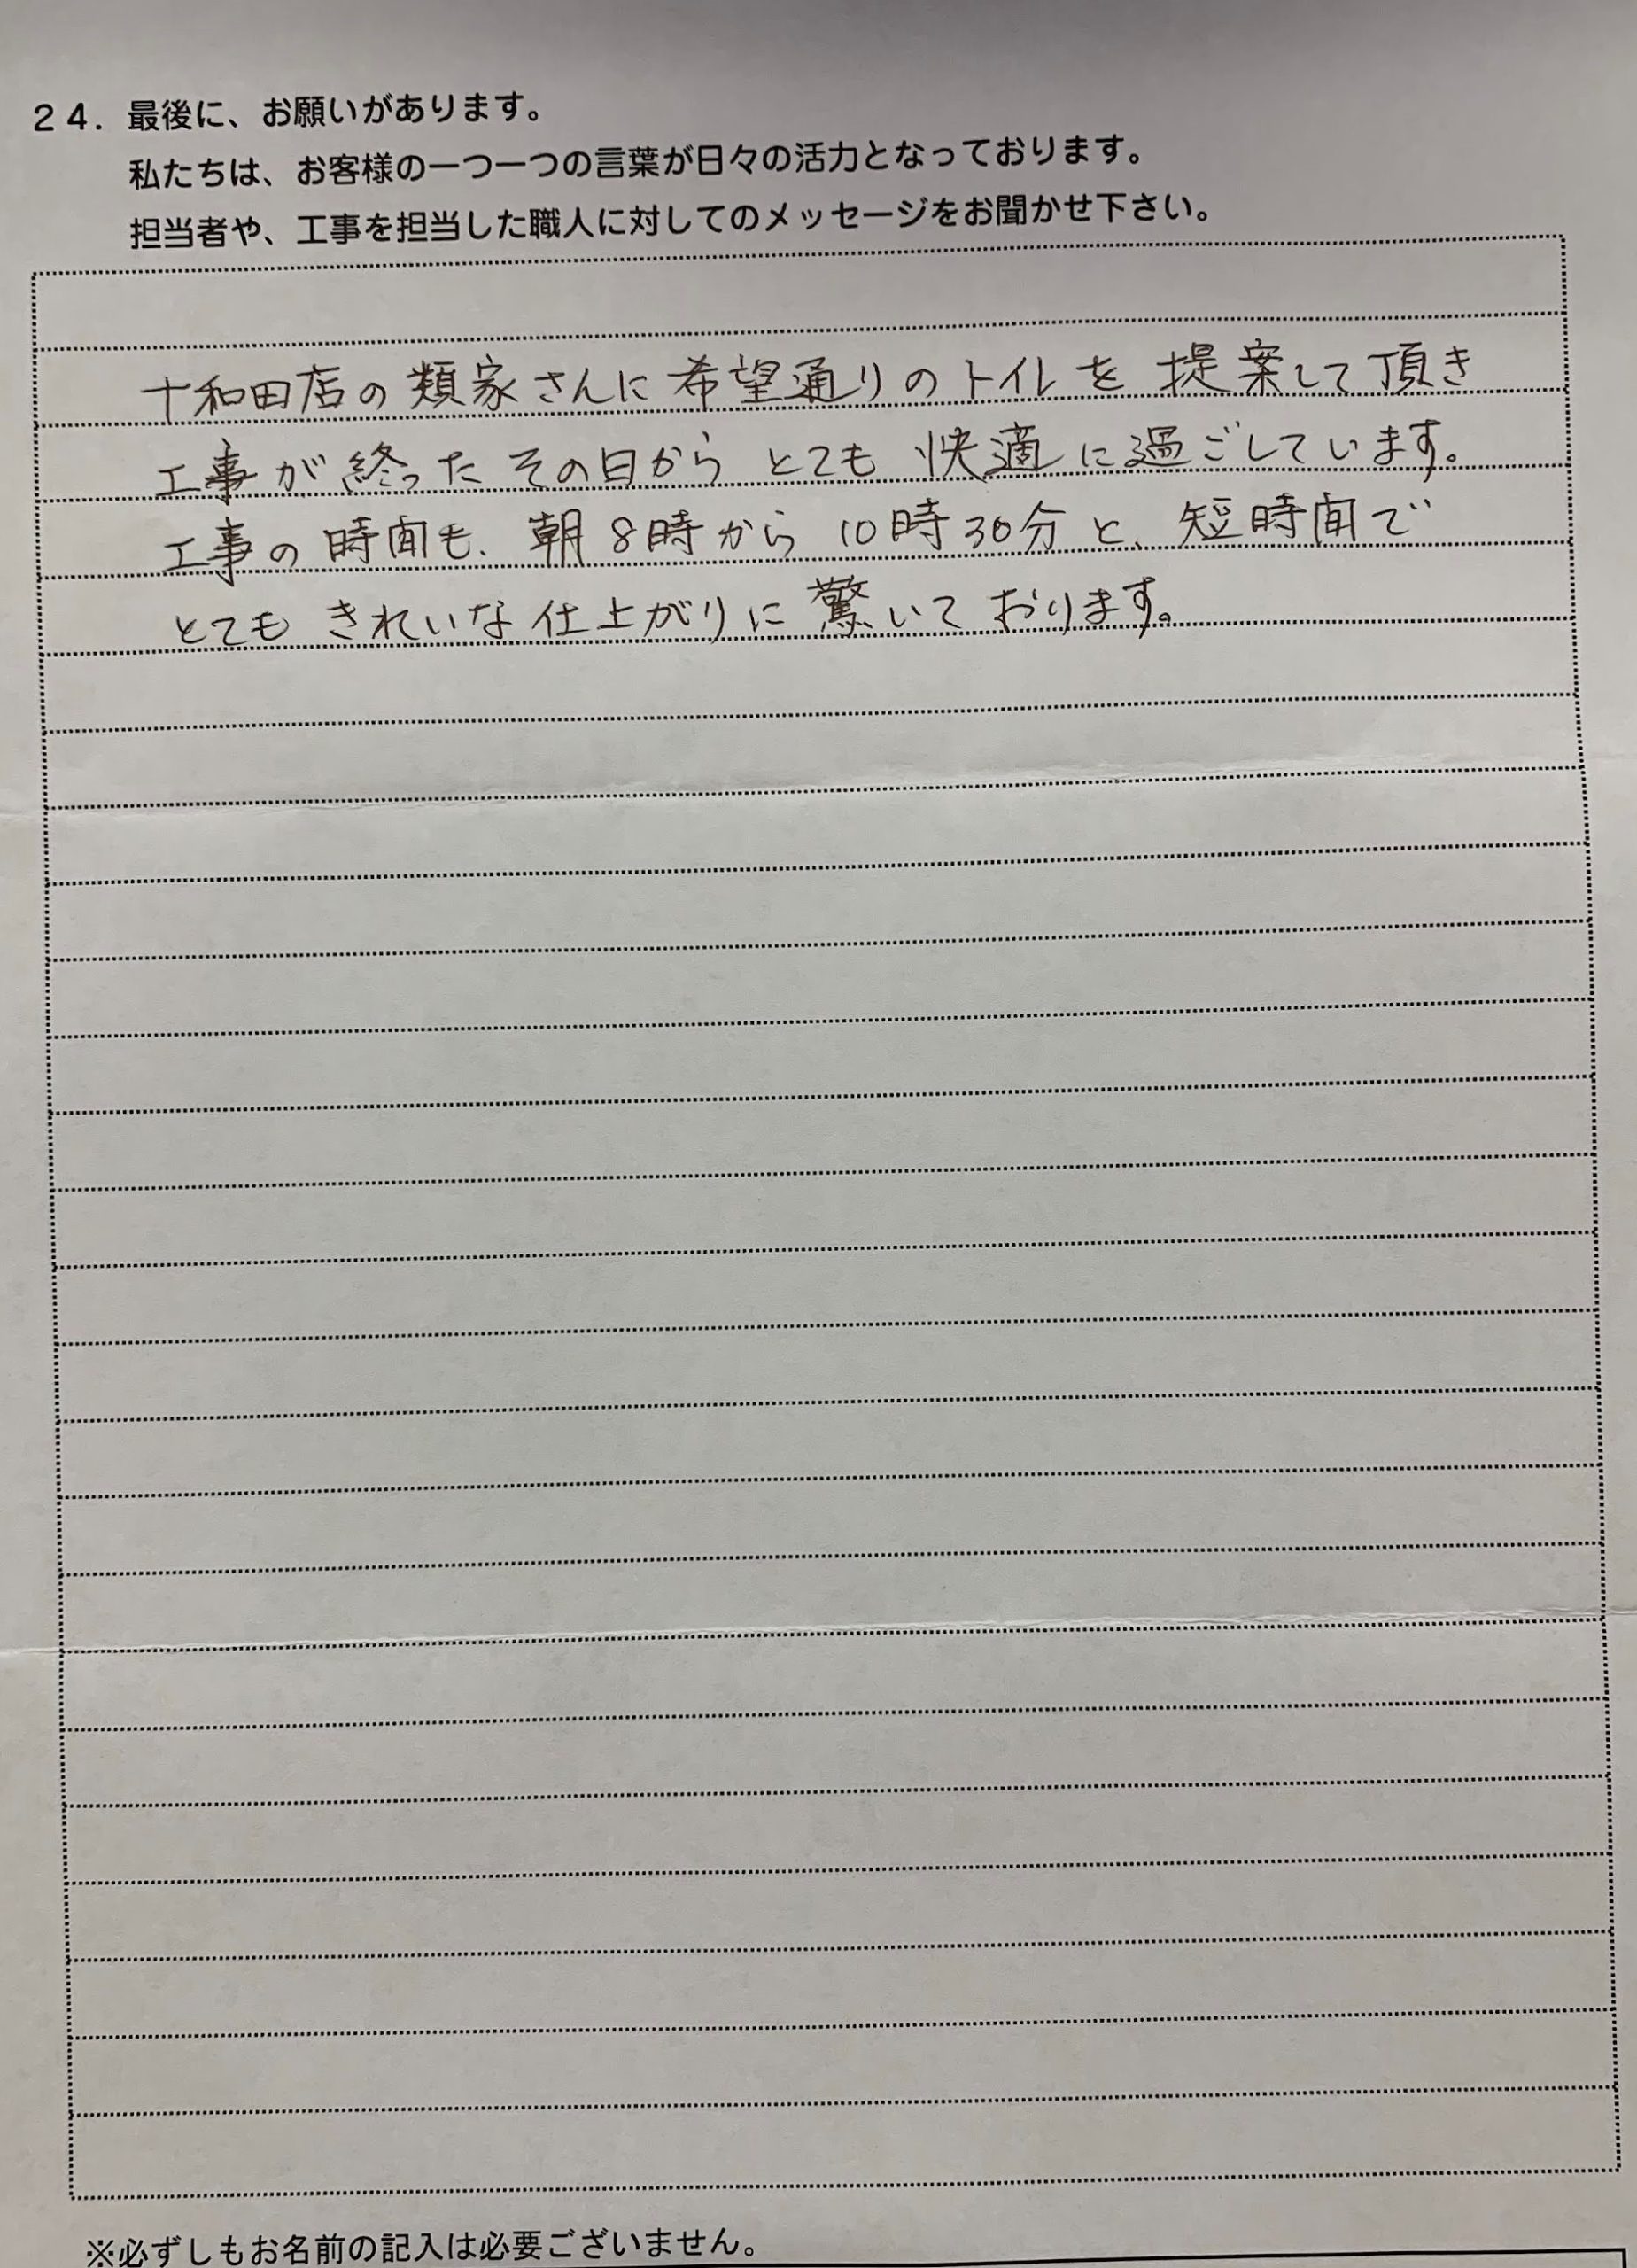 ２４．最後に、お願いがあります。
私たちは、お客様の一つ一つの言葉が日々の活力となっております。
担当者や、工事を担当した職人に対してのメッセージをお聞かせ下さい。
十和田店の類家さんに希望通りのトイレを提案して頂き
工事が終ったその日からとても快適に過ごしています。
工事の時間も、朝8時から10時30分と、短時間で
とてもきれいな仕上がりに驚いております。
※必ずしもお名前の記入は必要ございません。